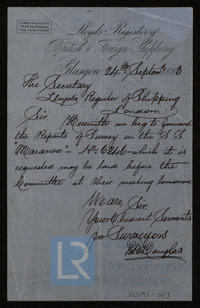 COMMUNICATIONS
TO BE ADDRESSED
TO THE SECRETARY
Lloyd's Register of
British & Foreign Shipping
Glasgow, 24th Septr 188
The Secretary
Lloyd's Register of Shipping
London.
Sir
Herewith we beg to forward
the Reports of Survey on the S.S.
No. 6246 which it is
requested may be laid before the
Committee at their meeting tomorrow
We are, Sir
Your Obedient Servants
pro Surveyors
Douglas
LR
Lloyd's Register
Foundation